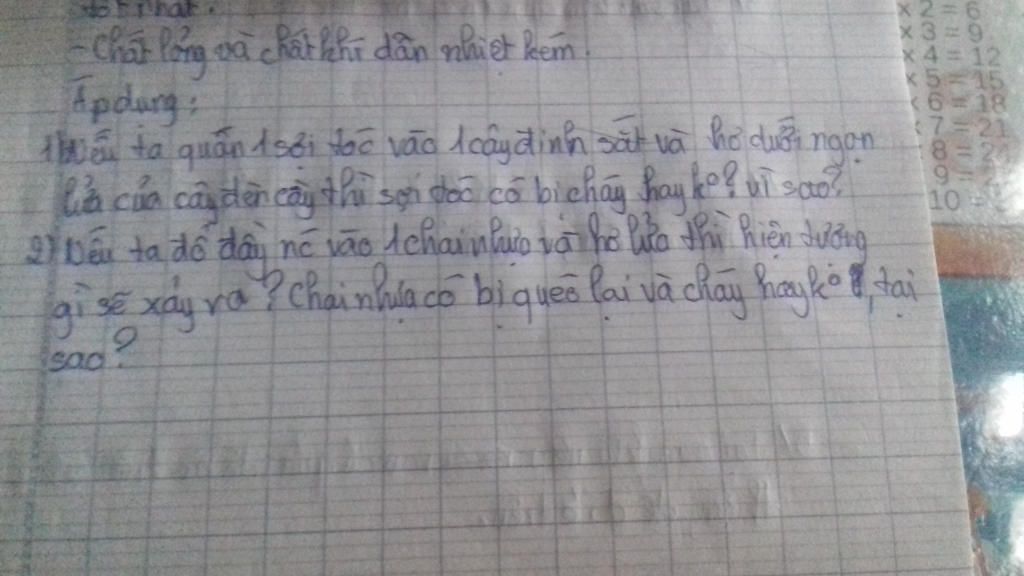 tốt nhất.
- Chất lỏng và chất khí dẫn nhiệt kém.
Áp dụng:
1) Nếu ta quấn 1 sợi tóc vào 1 cây đinh sắt và hơ dưới ngọn
lửa của cây đèn cầy thì sợi tóc có bị cháy hay ko? vì sao?
2) Nếu ta đổ đầy nc vào 1 chai nhựa và hơ lửa thì hiện tượng
gì sẽ xảy ra? Chai nhựa có bị quéo lại và cháy hay ko, tại
sao?
x 2 = 6
x 3 = 9
x 4 = 12
x 5 = 15
x 6 = 18
x 7 = 21
8 = 24
9 =
10 =